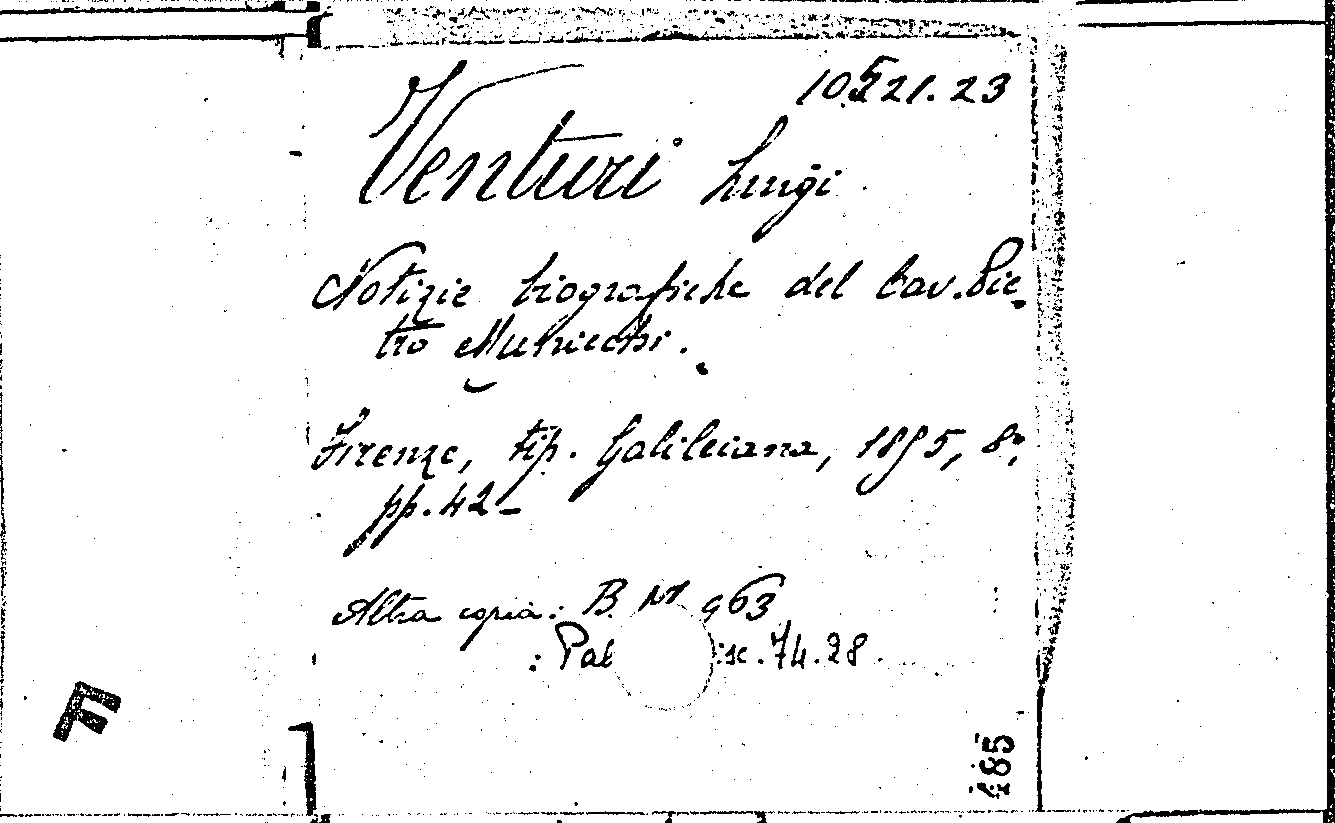 10521.23
Venturi Luigi
Notizie biografiche del Cav. Pie-
tro Municchi.
Firenze, tip. Galileiana, 1895, 8º,
pp. 42-
Altra copia: B. 963
: Pal isc. 74.28.
F
485